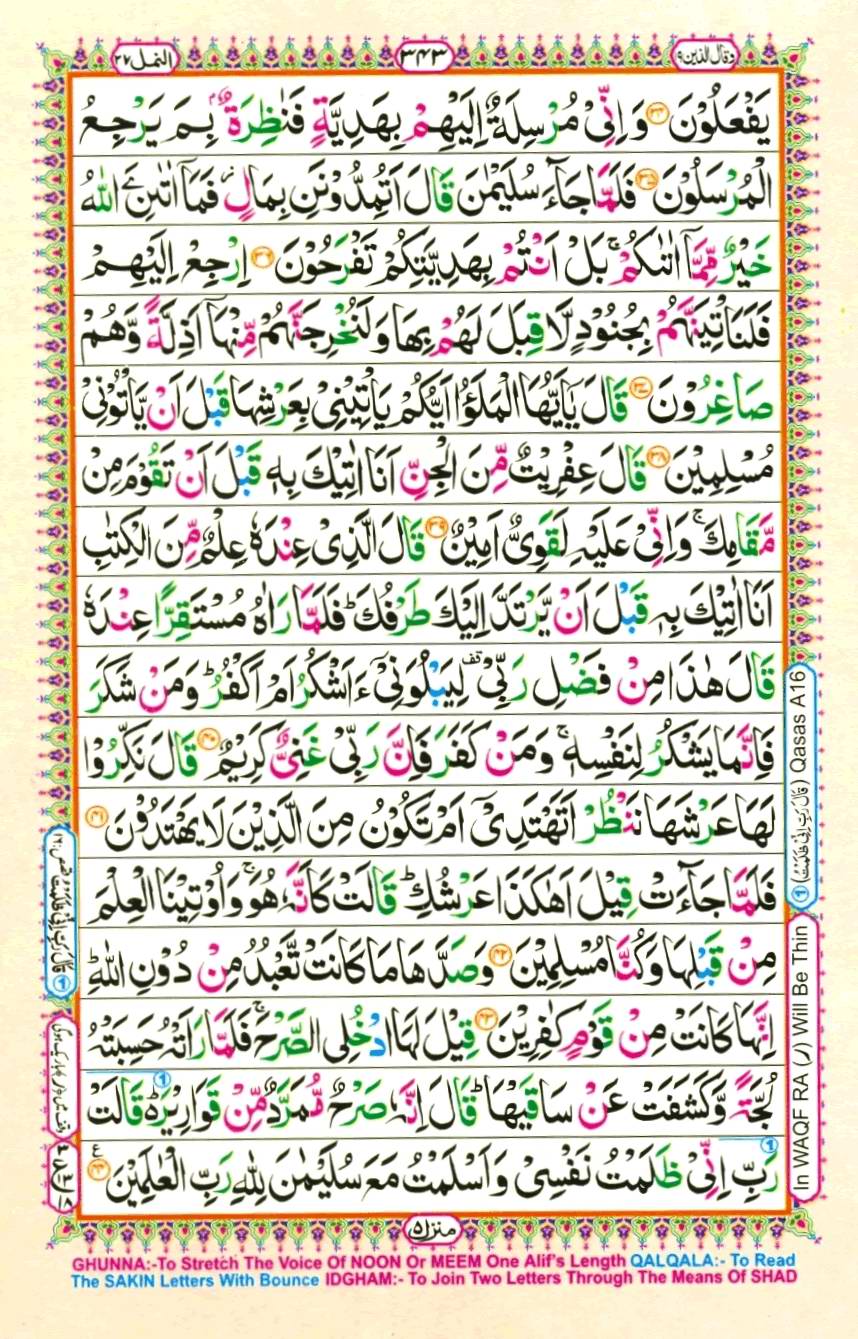 وقال الذین ۹
۳۴۳
النمل ۲۷
یَفْعَلُوْنَ ﴿۳۴﴾ وَ اِنِّیْ مُرْسِلَةٌ اِلَیْهِمْ بِهَدِیَّةٍ فَنٰظِرَةٌۢ بِمَ یَرْجِعُ
الْمُرْسَلُوْنَ ﴿۳۵﴾ فَلَمَّا جَآءَ سُلَیْمٰنَ قَالَ اَتُمِدُّوْنَنِ بِمَالٍ ؗ فَمَاۤ اٰتٰىنِۦَ اللّٰهُ
خَیْرٌ مِّمَّاۤ اٰتٰىكُمْ ۚ بَلْ اَنْتُمْ بِهَدِیَّتِكُمْ تَفْرَحُوْنَ ﴿۳۶﴾ اِرْجِعْ اِلَیْهِمْ
فَلَنَاْتِیَنَّهُمْ بِجُنُوْدٍ لَّا قِبَلَ لَهُمْ بِهَا وَ لَنُخْرِجَنَّهُمْ مِّنْهَاۤ اَذِلَّةً وَّ هُمْ
صَاغِرُوْنَ ﴿۳۷﴾ قَالَ یٰۤاَیُّهَا الْمَلَؤُا اَیُّكُمْ یَاْتِیْنِیْ بِعَرْشِهَا قَبْلَ اَنْ یَّاْتُوْنِیْ
مُسْلِمِیْنَ ﴿۳۸﴾ قَالَ عِفْرِیْتٌ مِّنَ الْجِنِّ اَنَا اٰتِیْكَ بِهٖ قَبْلَ اَنْ تَقُوْمَ مِنْ
مَّقَامِكَ ۚ وَ اِنِّیْ عَلَیْهِ لَقَوِیٌّ اَمِیْنٌ ﴿۳۹﴾ قَالَ الَّذِیْ عِنْدَهٗ عِلْمٌ مِّنَ الْكِتٰبِ
اَنَا اٰتِیْكَ بِهٖ قَبْلَ اَنْ یَّرْتَدَّ اِلَیْكَ طَرْفُكَ ؕ فَلَمَّا رَاٰهُ مُسْتَقِرًّا عِنْدَهٗ
قَالَ هٰذَا مِنْ فَضْلِ رَبِّیْ ۫ۖ لِیَبْلُوَنِیْۤ ءَاَشْكُرُ اَمْ اَكْفُرُ ؕ وَ مَنْ شَكَرَ
فَاِنَّمَا یَشْكُرُ لِنَفْسِهٖ ۚ وَ مَنْ كَفَرَ فَاِنَّ رَبِّیْ غَنِیٌّ كَرِیْمٌ ﴿۴۰﴾ قَالَ نَكِّرُوْا
لَهَا عَرْشَهَا نَنْظُرْ اَتَهْتَدِیْۤ اَمْ تَكُوْنُ مِنَ الَّذِیْنَ لَا یَهْتَدُوْنَ ﴿۴۱﴾
فَلَمَّا جَآءَتْ قِیْلَ اَهٰكَذَا عَرْشُكِ ؕ قَالَتْ كَاَنَّهٗ هُوَ ۚ وَ اُوْتِیْنَا الْعِلْمَ
مِنْ قَبْلِهَا وَ كُنَّا مُسْلِمِیْنَ ﴿۴۲﴾ وَ صَدَّهَا مَا كَانَتْ تَّعْبُدُ مِنْ دُوْنِ اللّٰهِ ؕ
اِنَّهَا كَانَتْ مِنْ قَوْمٍ كٰفِرِیْنَ ﴿۴۳﴾ قِیْلَ لَهَا ادْخُلِی الصَّرْحَ ۚ فَلَمَّا رَاَتْهُ حَسِبَتْهُ
لُجَّةً وَّ كَشَفَتْ عَنْ سَاقَیْهَا ؕ قَالَ اِنَّهٗ صَرْحٌ مُّمَرَّدٌ مِّنْ قَوَارِیْرَ ؕ۬ قَالَتْ
رَبِّ اِنِّیْ ظَلَمْتُ نَفْسِیْ وَ اَسْلَمْتُ مَعَ سُلَیْمٰنَ لِلّٰهِ رَبِّ الْعٰلَمِیْنَ ﴿۴۴﴾ ع
① (قَالَ رَبِّ اِنِّیْ ظَلَمْتُ) Qasas A16
In WAQF RA (ر) Will Be Thin
① قَالَ رَبِّ اِنِّیْ ظَلَمْتُ قصص:۱۶
منزل ۵
GHUNNA:-To Stretch The Voice Of NOON Or MEEM One Alif's Length QALQALA:- To Read
The SAKIN Letters With Bounce IDGHAM:- To Join Two Letters Through The Means Of SHAD